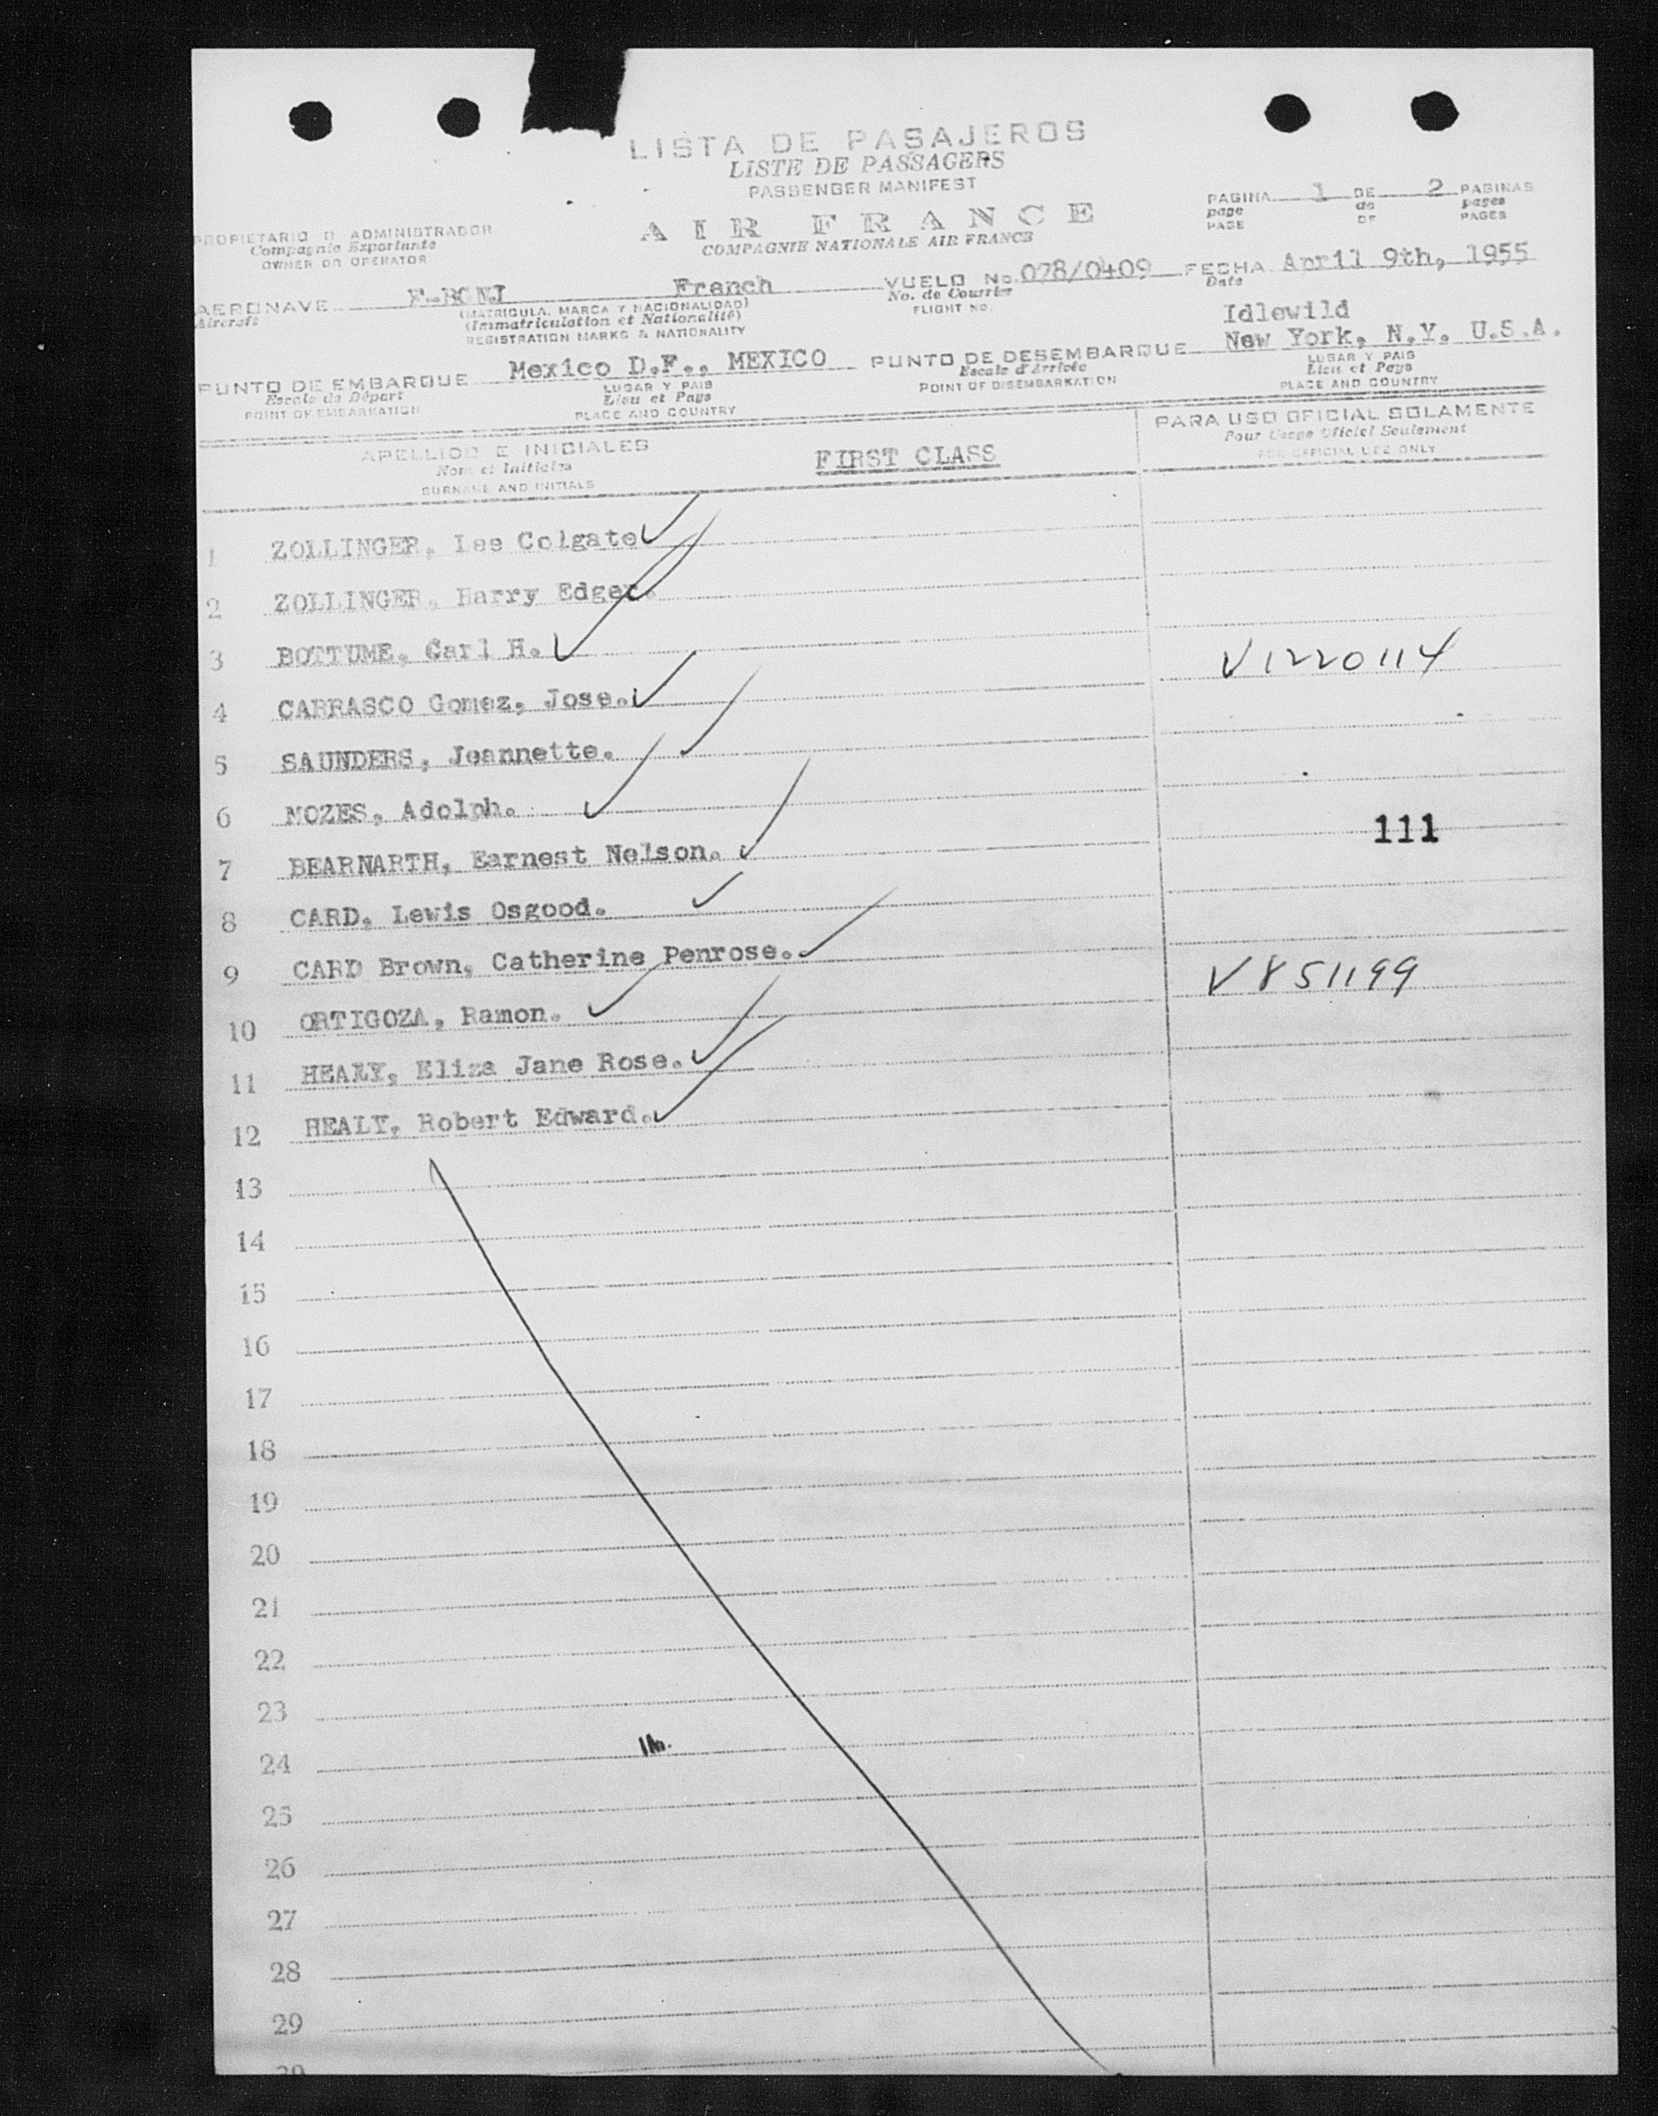 LISTA DE PASAJEROS
LISTE DE PASSAGERS
PASSENGER MANIFEST
PAGINA 1 DE 2 PAGINAS
page de pages
PAGE OF PAGES
PROPIETARIO O ADMINISTRADOR
Compagnie Exportante
OWNER OR OPERATOR
AIR FRANCE
COMPAGNIE NATIONALE AIR FRANCE
AERONAVE Franch VUELO No. 078/0409 FECHA April 9th, 1955
Aircraft (MATRICULA, MARCA Y NACIONALIDAD) No. de Courrier Date
(Immatriculation et Nationalité) FLIGHT NO.
REGISTRATION MARKS & NATIONALITY
Idlewild
PUNTO DE EMBARQUE Mexico D.F., MEXICO PUNTO DE DESEMBARQUE New York, N.Y. U.S.A.
Escale de Départ LUGAR Y PAIS Escale d'Arrivée LUGAR Y PAIS
POINT OF EMBARKATION Lieu et Pays POINT OF DISEMBARKATION Lieu et Pays
PLACE AND COUNTRY PLACE AND COUNTRY
APELLIDO E INICIALES FIRST CLASS PARA USO OFICIAL SOLAMENTE
Nom et Initiales Pour Usage Officiel Seulement
SURNAME AND INITIALS FOR OFFICIAL USE ONLY
1 ZOLLINGER, Lee Colgate
2 ZOLLINGER, Harry Edger.
3 BOTTUME, Carl H.
4 CARRASCO Gomez, Jose. V1220114
5 SAUNDERS, Jeannette.
6 MOZES, Adolph.
7 BEARNARTH, Earnest Nelson. 111
8 CARD, Lewis Osgood.
9 CARD Brown, Catherine Penrose.
10 ORTIGOZA, Ramon. V851199
11 HEALY, Eliza Jane Rose.
12 HEALY, Robert Edward.
13
14
15
16
17
18
19
20
21
22
23
24
25
26
27
28
29